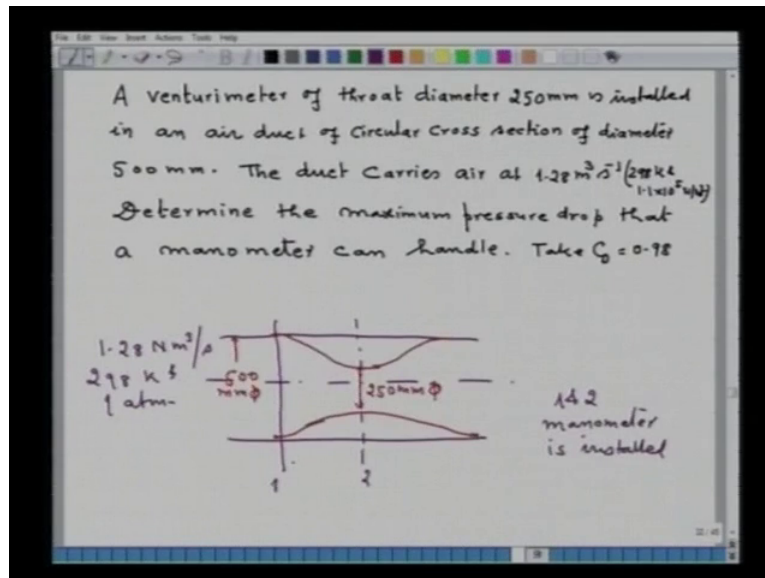 File Edit View Insert Actions Tools Help
A venturimeter of throat diameter 250mm is installed
in an air duct of circular cross section of diameter
500 mm. The duct carries air at 1.28 m³ s⁻¹ (298 K &
1.1×10⁵ N/m²)
Determine the maximum pressure drop that
a manometer can handle. Take C_D = 0.98
1.28 Nm³/s
298 K &
1 atm.
500
mm φ
250mm φ
1 & 2
manometer
is installed
1 2